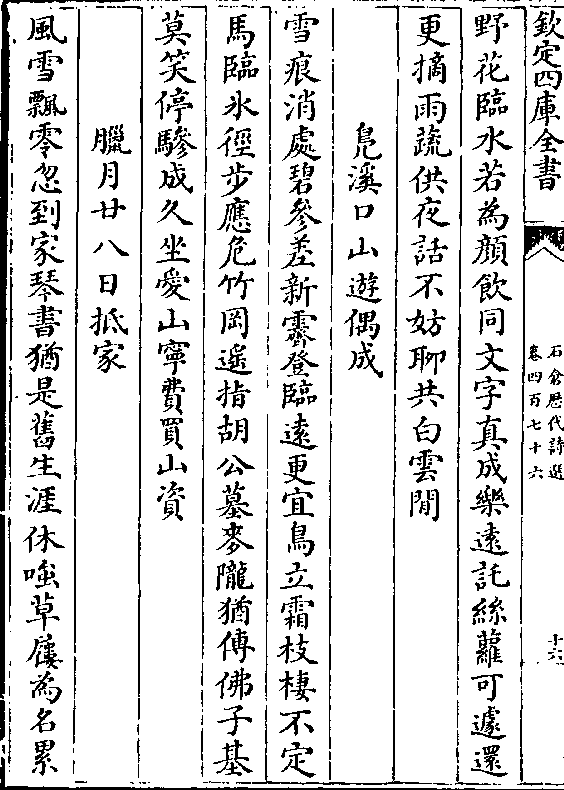 欽定四庫全書
石倉歷代詩選
卷四百七十六
十六
野花臨水若為顔飲同文字真成樂遠託絲蘿可遽還
更摘雨蔬供夜話不妨聊共白雲閒
鳧溪口山遊偶成
雪痕消處碧參差新霽登臨遠更宜鳥立霜枝棲不定
馬臨氷徑步應危竹岡遙指胡公墓麥隴猶傳佛子基
莫笑停驂成久坐愛山寧費買山資
臘月廿八日抵家
風雪飄零忽到家琴書猶是舊生涯休嗤草屨為名累